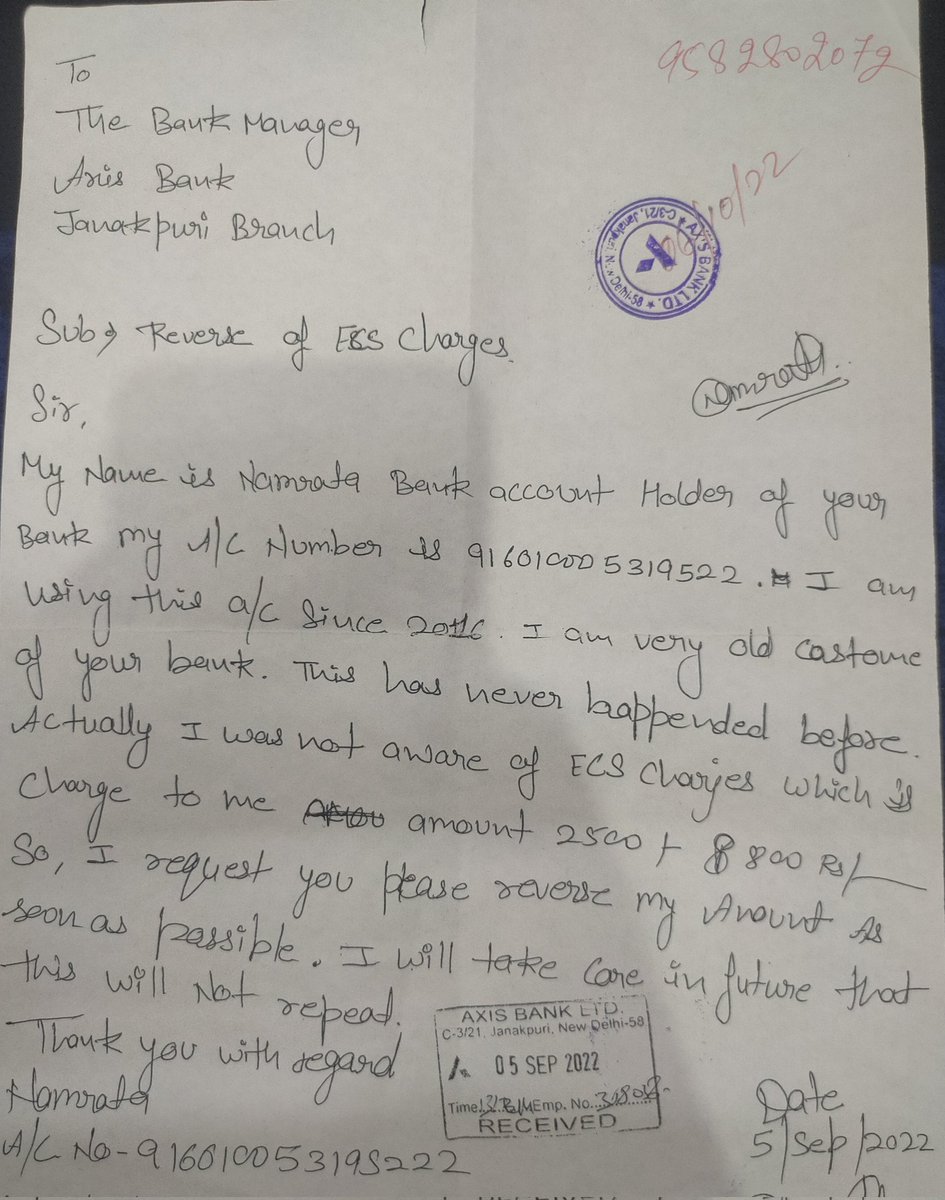 9582802072
To
The Bank Manager
Axis Bank
Janakpuri Branch
/10/22
AXIS BANK LTD. ★ C-3/21, Janakpuri, New Delhi-58 ★
Sub⇒ Reverse of ECS Charges.
Namrata
Sir,
My Name is Namrata Bank account Holder of your
Bank my A/C Number is 916010005319522. I am
using this a/c Since 2016. I am very old castome
of your bank. This has never happended before.
Actually I was not aware of ECS Charjes which is
Charge to me amount 2500 + 800 Rs/-
So, I request you please reverse my Amount As
soon as possible. I will take Care in future that
this will Not repeat.
Thank you with regard
Namrata
A/C No - 91601005319S222
AXIS BANK LTD.
C-3/21, Janakpuri, New Delhi-58
05 SEP 2022
Time Emp. No.
RECEIVED
Date
5/Sep/2022